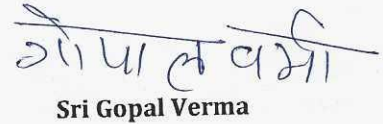 गोपाल वर्मा
Sri Gopal Verma